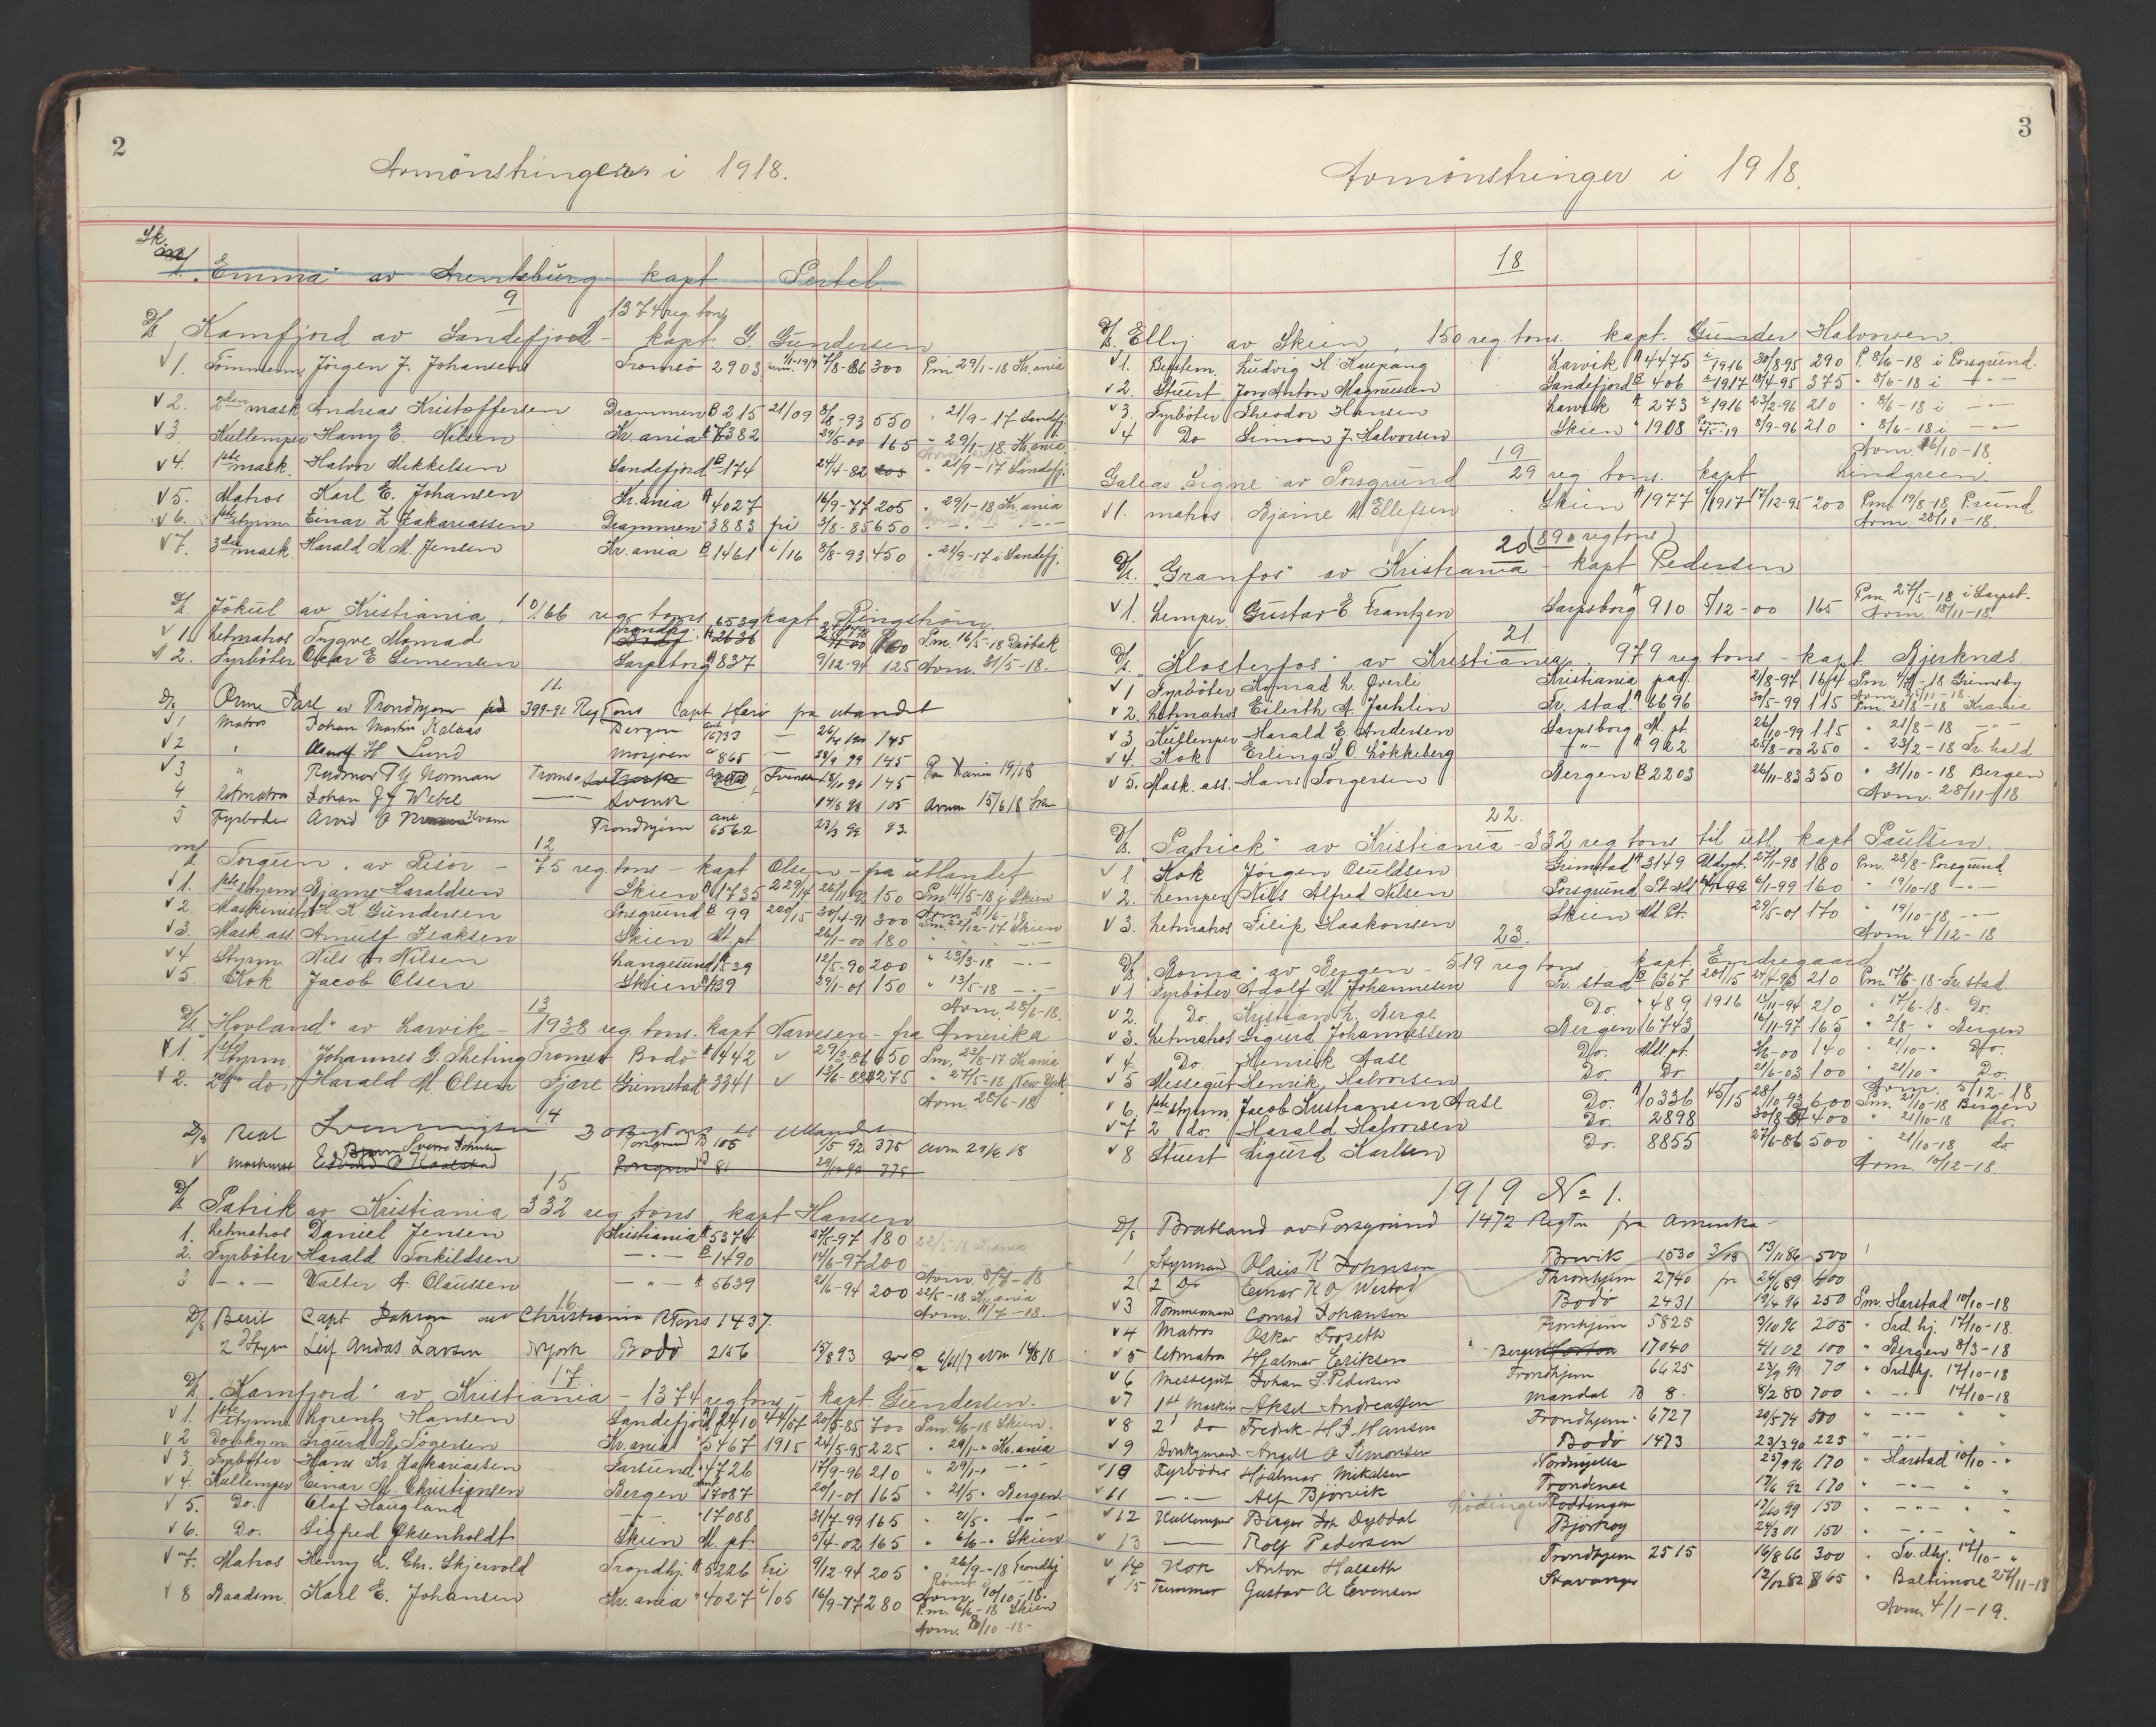 2
Avmönstringer i 1918.
Sk.
"Emma" av Arensburg kapt Sertel
9
1374 reg. tons
D/S Kamfjord av Sandefjord - kapt. G. Gundersen
v 1. Tömmerm. Jörgen J. Johansen Tromsö 2903 7/8-86 300 Pm 29/1-18 Kr.ania
v 2. 2den mask Andreas Kristoffersen Drammen B 215 21/09 8/8-93 550 " 21/9-17 Sandefj.
v 3. Kullemper Harry E. Nilsen Kr.ania A 7382 29/5-00 165 " 29/1-18 Kr.ania
v 4. 1ste mask. Halvor Mikkelsen Sandefjord B 174 24/4-82 " 21/9-17 Sandefj.
v 5. Matros Karl E. Johansen Kr.ania A 4027 16/9-77 205 " 29/1-18 Kr.ania
v 6. 1ste styrm Einar Z Zakariassen Drammen 3883 fri 3/8-85 650 " - " -
v 7. 3die mask. Harald M. M. Jensen Kr.ania B 1461 i/16 8/8-93 450 " 21/9-17 i Sandefj.
10
D/S Jökul av Kristiania, 1166 reg tons kapt Ringström
v 1. Letmatros Trygve Monrad Trondhj. 6539 Pm. 16/5-18 Dröbak
v 2. Fyrböter Oskar E Simensen Sarpsborg A 837 9/12-94 125 Avm. 31/5-18.
11.
D/S Orm Jarl av Trondhjem 399-91 Reg Tons Capt Herö fra utandet
v 1 Matros Johan Martin Kalaas Bergen 16733 - 145
v 2 " H Lund Mosjöen 865 - 23/9 99 145
v 3 " Norman Tromsö 145 Pm Kania 19/18
4 Letmatros Johan J Webel Svensk 14/8 98 105 Avm 15/6 18
5 Fyrböder Arvid A Kvam Trondhjem 6562 23/3 99 93.
12
M/S Torgun, av Risör - 75 reg tons - kapt Olsen - fra utlandet
v 1. 1ste styrm Bjarne Haraldsen Skien A 1735 229/14 26/11-92 150 Pm 14/5-18 i Skien
v 2. Maskinist K. K Gundersen Porsgrund B 99 200/15 30/4-91 300 Avm. 21/6-18
v 3. Mask ass. Arnulf Isaksen Skien Mt. pt 26/1-00 180 Pm. 22/12-17 Skien
v 4 Styrm Nils A Nilsen Langesund A 1539 12/5-90 200 " 23/3-18 - " -
v 5. Kok Jacob Olsen Skien 29/1-01 150 " 13/5-18 - " -
Avm. 28/6-18.
13
D/S "Hovland" av Larvik - 1938 reg tons. kapt Narvesen - fra Amerika
v 1. 1ste Styrm. Johannes G. Sheting Tromsö Bodö A 1442 29/3-86 650 Pm. 23/8-17 Kr.ania
v 2. 2den do. Harald M Olsen Fjære Grimstad 3341 13/6-88 275 " 27/5-18 New York
Avm. 28/6-18
14
D/S Real 30 RegTons til Utlandet
Bjarne Sverre Johnsen Porsgrund B 105 1/5 92 375 Avm 29/6 18
v Maskinist Porsgrund B 81 29/12 92 375
15
D/S Patrik av Kristiania 332 reg tons kapt Hansen
1. Letmatros Daniel Jensen Kristiania A 5374 27/5-97 180 22/5-18 Krania
2. Fyrböter Harald Torkildsen - " - B 1490 14/6-97 200 Avm. 8/7-18
3 - " - Walter A. Olaussen - " - A 5639 21/6-94 200 22/5-18 Kr.ania
Avm. 11/7-18.
16
D/S Berit Capt Johnsen av Christiania RTons 1437
2 Styrm Leif Andras Larsen NYork Bodö 2156 15/8 93
17
D/S "Kamfjord" av Kristiania - 1374 reg tons - kapt. Gundersen.
v 1. 1ste styrm. Lorentz Hansen Sandefjord A 2410 44/07 20/8-85 700 Pm. 6/6-18 Skien.
v 2 Donkym. Sigurd B. Tögersen Kr.ania 5467 1915 24/5-95 225 " 29/1-" Kr.ania
v 3. Fyrböter Hans Kr. Zakariassen Farsund 4726 17/9-96 210 " 29/1-" - " -
v 4. Kullemper Einar M. Christiansen Bergen 17087 20/1-01 165 " 21/5 " Bergen.
v 5. Do. Olaf Haugland - " - 17088 31/7-99 165 " 21/5 " - " -
v 6. Do. Sigfred Oksenholdt Skien M. pt. 5/4-02 165 " 6/6-" Skien
v 7. Matros Henry L. Chr. Skjervold Trondhj. A 5226 Fri 9/12-94 205 " 26/9-18 Trondhj
Avm. 10/10-18.
v 8 Baadsm. Karl E. Johansen Kr.ania " 4027 i/05 16/9-77 280 Pm. 6/6-18 Skien
Avm. 10/10-18-
3
Avmönstringer i 1918.
18
D/S Elly av Skien, 150 reg tons. kapt. Gunder Halvorsen.
v 1. Bestem. Ludvig H. Kaupang Larvik A 4475 1916 30/8-95 290 P. 8/6-18 i Porsgrund.
v 2. Stuert Jon Anton Magnussen Sandefjord B 406 1917 18/4-95 375 " 8/6-18 i - " -
v 3. Fyrböter Theodor Hansen Larvik A 273 1916 23/2-96 210 " 8/6-18 i - " -
v 4 Do Simon J. Halvorsen Skien " 1908 8/9-96 210 " 8/6-18 i - " -
Avm. 16/10-18
19
Galeas "Signe" av Porsgrund 29 reg tons. kapt Lindgreen.
v 1. matros Bjarne M Ellefsen Skien A 1977 1917 17/12-95 200 Pm. 19/8-18 P.rund
Avm 28/10-18.
20 (890 reg tons)
D/S. "Granfos" av Kristiania - kapt Pedersen
v 1. Lemper. Gustav E. Frantzen Sarpsborg A 910 7/12-00 165 Pm. 27/5-18 i Sarpsb.
Avm. 18/11-18.
21.
D/S. "Klosterfos" av Kristiania, 979 reg tons - kapt. Bjerknes
v 1 Fyrböter Konrad L. Överli Kristiania pas. 21/8-97 Grimsby
v 2. Letmatros Eilerth A. Jechlin Fr. stad. A 6696 30/5-99 115 Pm. 21/8-18 Krania
v 3 Kullemper Harald E. Andersen Sarpsborg M. pt. 26/10-99 115 " 21/8-18 - " -
v 4. Kok Erling S. O. Lökkeberg - " - A 922 25/8-00 250 " 23/2-18 Fr. hald
v 5. Mask. ass. Hans Torgersen Bergen B 2203 26/11-83 350 " 31/10-18 Bergen
Avm. 28/11-18
22.
D/S. "Patrick" av Kristiania - 332 reg tons til utl. kapt Paulsen.
v 1 Kok Jörgen Osuldsen Grimstad A 3149 Utdygt. 27/1-98 180 Pm. 28/8-Porsgrund
v 2. Lemper Nils Alfred Nilsen Porsgrund 6/1-99 160 " 19/10-18 - " -
v 3. Letmatros Filip Haakonsen Skien Md Pt. 29/5-01 170 " 19/10-18 - " -
Avm. 4/12-18
23.
D/S "Roma" av Bergen - 519 reg tons kapt. Endregaard
v 1 Fyrböter Adolf M Johannesen Fr. stad B 367 201/15 210 Pm 17/6-18-Fr.stad
v 2. Do. Kristian L. Berge Do. " 489 1916 13/11-94 210 " 17/6-18. Do.
v 3. Letmatros Sigurd Johannessen Bergen 16743 16/11-97 165 " 2/8- " Bergen
v 4. Do. Henrik Aase Do. Mdl. pt. 3/6-00 140 " 21/10-" Do.
v 5 Messegut Henrik Halvorsen Do. Do. 21/6-03 100 " 21/10 " Do.
Avm. 5/12-18
v 6. 1ste styrm. Jacob Kristiansen Aase Do. A 10336 45/15 28/10-93 600 Pm. 21/10-18 Bergen
v 7 2 do. Harald Halvorsen Do. 2898 400 " 21/10-18 do.
v 8 Stuert Sigurd Karlsen Do. 8855 27/6-86 500 " 21/10-18 do
Avm. 10/12-18
1919 No 1.
D/S Bratland av Porsgrund 1472 RegTn fra Amerika -
1 Styrmand Olaus K Johnsen Brevik 1530 3/18 13/11 86 500
2 2 Do Einar K O Westad Thronhjem 2740 fri 24/6 89 400
v 3 Tömmermand Conrad Johansen Bodö 2431 19/4 96 250 Pm. Harstad 10/10-18
v 4 Matros Oskar Froseth Tronhjem 5825 3/10 96 205 " Trd. hj. 17/10-18.
v 5 Letmatros Hjalmar Eriksen Bergen 17040 4/1 02 100 " Bergen 8/3-18
v 6 Messegut Johan S. Pedersen Trondhjem 6625 23/9 99 70 " Trdhj. 17/10-18
v 7 1st Maskin Aksel Andreassen Mandal B 8. 8/2 80 700 " - " - 17/10-18
v 8 2 do Fredrik H J Hansen Trondhjem 6727 20/5 74 500 " - " - " "
v 9 Donkymand Angell O Simonsen Bodö 1473 23/3 90 225 " - " - " "
v 10 Fyrböder Hjalmar Mikalsen 25/9 96 170 " Harstad 10/10-"
v 11 - " - Alf Bjørvik Trondenes 17/6 92 170 " - " - " "
v 12 Kullemper Birger Joh Dybdal Lödingen 150 " - " - " "
v 13 - " - Rolf Pedersen 24/3 01 150 " - " - " "
v 14 Kok Anton Halseth Trondhjem 2515 16/8 66 300 " Tr.dhj. 17/10-"
v 15 Trimmer Gustav A Evensen Stavanger 12/12 82 " Baltimore 27/11-18
Avm. 4/1-19.